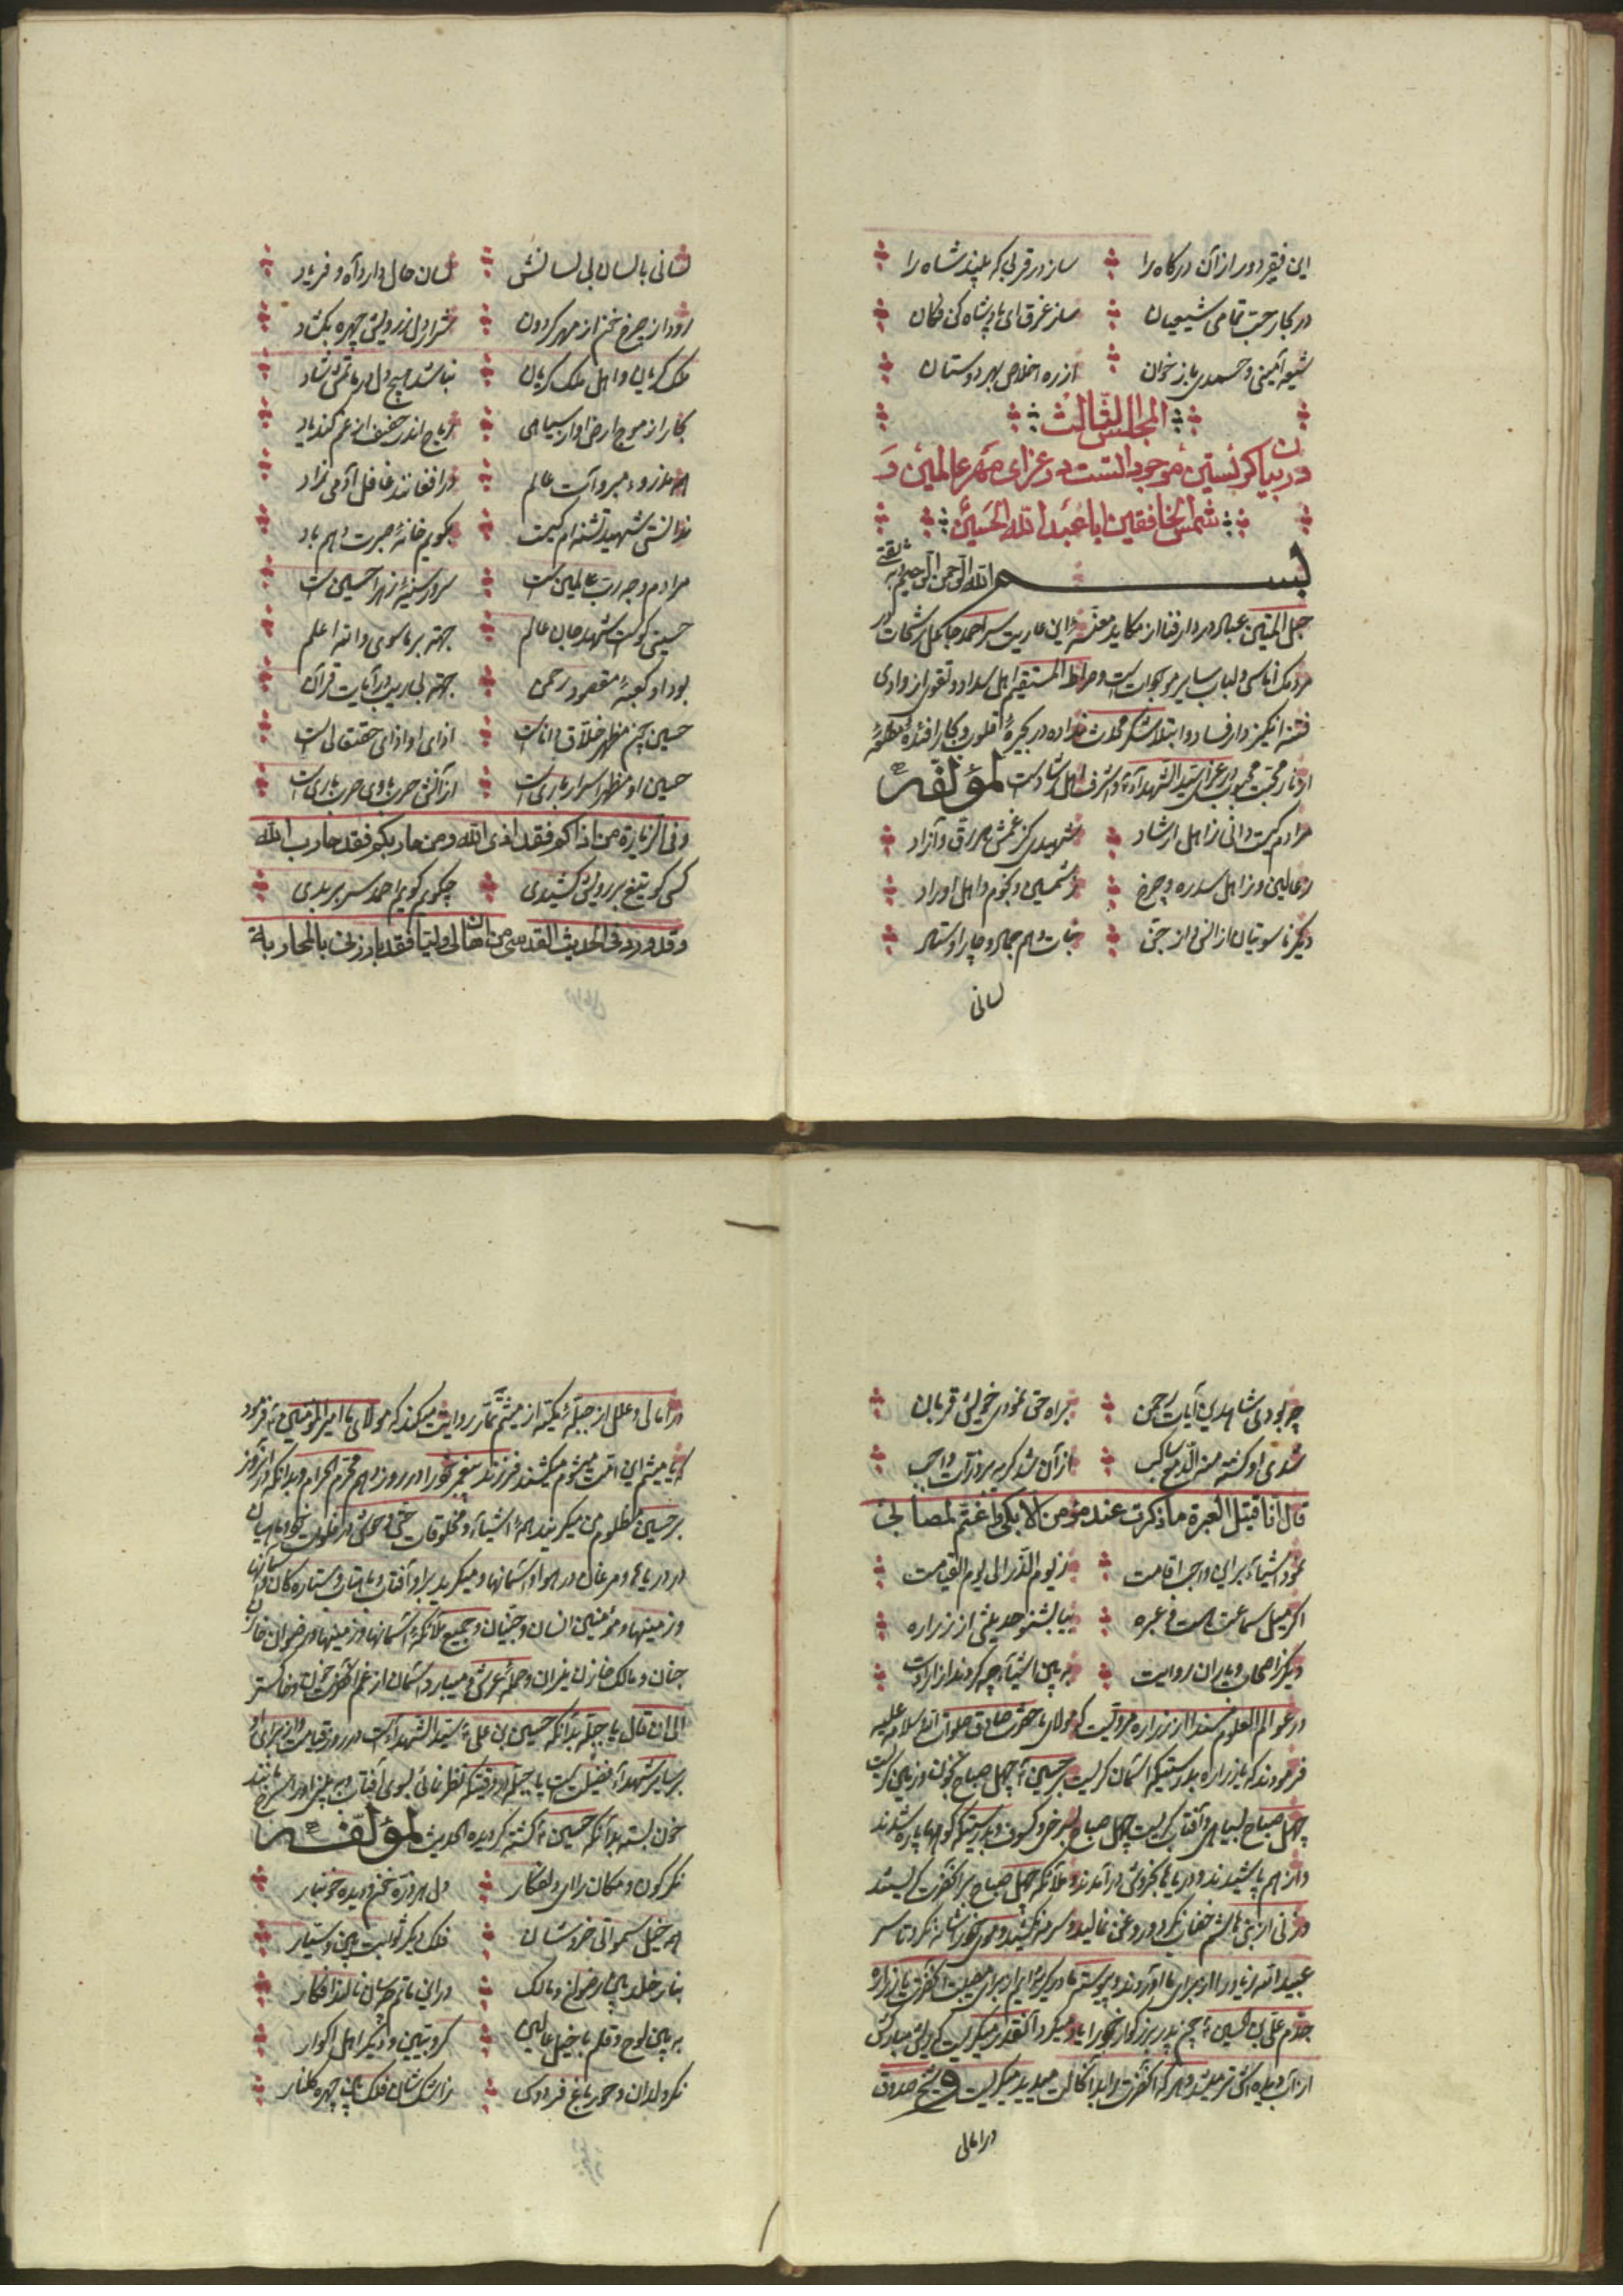 این فقیر دور از آن درگاه را سازد قربی که بیند شاه را
در بحار رحمت تمامی شیعیان ساز غرق ای پادشاه کن فکان
شیعه آمینی و حمدی باز خوان از ره اخلاص بهر دوستان
المجلس الثالث
در بیان گریستن موجود است در عزای مهر عالمین و
شمس الخافقین ابا عبد الله الحسین
بسم الله الرحمن الرحیم وبه ثقتی
حبل المتین عباد در دار فنا از مکاید این سرا رشحات
مردمک اناسی ولباب سایر موجودات است وصراط المستقیم اهل سداد وتقوی از وادی
فتنه انگیز دار فساد وابتلا
در عزای سید الشهداء اشرف اهل رشادست لمؤلفه
مرادم کیست دانی ز اهل ارشاد شهیدی کز غمش هر رق و آزاد
ز عالین و ز اهل سدره و چرخ ز شمسین و نجوم و اهل اوراد
دیگر ناسوتیان از انس و از جن نبات و هم جماد و چار اوستاد
لسانی
لسانی با لسان بی لسانش لسان حال دارد آه و فریاد
رود از چرخ از مهر گردون شرار دل ز رویش چهره بگشاد
ملک گریان و اهل ملک گریان نباشد هیچ دل در ماتمش شاد
بحار از موج ارض او از سیاهی ریاح اندر حفیف از غم کند یاد
عالم ورا افغانند غافل آدمی زاد
ندانستی شهید تشنه ام کیست بگویم خانه صبرت دهم باد
مرادم وجه رب عالمین است سرور سینه زهرا حسین است
حسینی کوست شهد جان عالم جهته بر ماسوی والله اعلم
بود او کعبه مقصود رحمن جهته بی ریب در آیات قرآن
حسین چون مظهر خلاق داناست اذای او اذای حقتعالی است
حسین او مظهر اسرار باری است از آنش حرب با وی حرب باری است
وفی الزیارة من اذاکم فقد اذی الله ومن حاربکم فقد حارب الله
کسی کو تیغ بر رویش کشیدی چگویم گویم احمد سر بریدی
وقد ورد فی الحدیث القدسی من اهان لی ولیا فقد بارزنی بالمحاربة
چو بودی شاهدین آیات رحمن براه حق نمودی خویش قربان
شدی او کشته مر الدمع ساکب از آن شد گریه بر ذرات واجب
قال انا قتیل العبرة ما ذکرت عند مؤمن الا بکی واغتم لمصابی
نمود اشیاء بر این واجب اقامت ز یوم الذر الی یوم القیامت
اگر میل سماعت هست و عبره بیا بشنو حدیثی از زراره
دیگر اصحاب و یاران روایت به بین اشیاء چه کردند از ارادت
در عوالم العلوم مسندا از زراره مرویست که مولای ما حضرت صادق صلوات الله وسلامه علیه
فرمودند که یا زراره بدرستیکه آسمان گریست بر حسین چهل صباح بخون وزمین گریست
چهل صباح بسیاهی وآفتاب گریست چهل صباح بسرخی وکسوف وبدرستیکه کوهها پاره شدند
واز هم پاشیدند ودریاها بخروش در آمدند وملائکه چهل صباح بر آنحضرت گریستند
وزنی از بنی هاشم خضاب نکرد وروغن نمالید وسرمه نکشید وموی خود شانه نکرد تا سر
عبید الله زیاد را از برای ما آوردند وپیوسته ما در گریه ایم از برای مصیبت آنحضرت یا زراره
جدم علی بن الحسین چون پدر بزرگوار خود را یاد میکرد آنقدر میگریست که ریش مبارکش
از آب دیده اش تر میشد وهر که آنحضرت را بدان حالت میدید میگریست وشیخ صدوق
در امالی
در امالی وعلل از جبله مکیه از میثم تمار روایت میکند که مولای ما امیر المؤمنین فرمود
که یا میثم این امت میکشند فرزند پیغمبر خود را در روز دهم محرم الحرام وبدانکه در آنروز
بر حسین مظلوم من میگریند همه اشیاء ومخلوقات حتی وحوش در فلوات خود وماهیان
در دریاها ومرغان در هوا وآسمانها ومیگریند بر او آفتاب وماهتاب وستاره گان وآسمانها
وزمینها ومؤمنین انسان وجنیان وجمیع ملائکه آسمانها وزمینها ورضوان خازن
جنان ومالک خازن نیران وحمله عرش ومیبارد آسمان از غم آنحضرت خون وخاکستر
الی ان قال یا جبله بدانکه حسین بن علی سید الشهداء است در روز قیامت واز برای او
بر سایر شهداء فضیلت است یا جبله هر وقتیکه نظر نمائی بسوی آفتاب وببینی او را سرخ مانند
خون بسته بدانکه حسین کشته گردیده الحدیث لمؤلفه
نگر کون و مکان را دلفکار دل هر ذره خون دیده خونبار
همه خیل سمواتی خروشان فلک دیگر ثوابت بین و سیار
بنار خلد بین رضوان و مالک در این ماتم نالند افکار
به بین لوح و قلم با خیل عالین کروبیین و دیگر اهل اکوار
نگر ولدان و حور باغ فردوس ز اشک شان فلک بین چهره گلنار